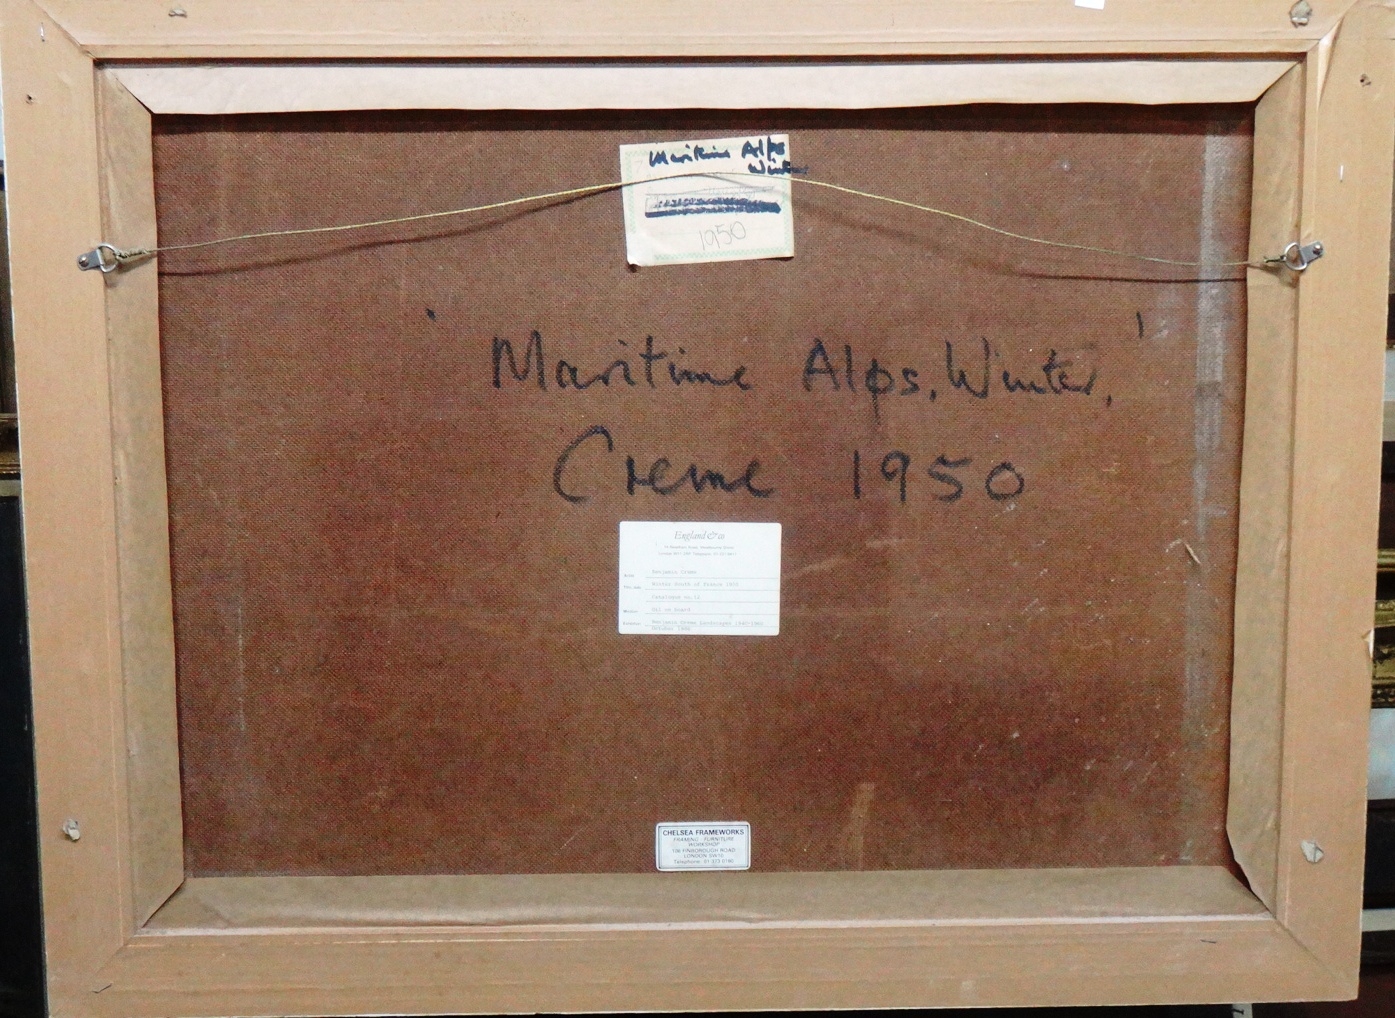 Maritime Alps
Winter
1950
'Maritime Alps, Winter,'
Creme 1950
England & Co
Benjamin Creme
Winter South of France 1950
Catalogue no.14
Oil on board
Benjamin Creme Landscapes
October 1988
CHELSEA FRAMEWORKS
FRAMING · FURNITURE
WORKSHOP
106 FINBOROUGH ROAD
LONDON SW10
Telephone: 01-373 0180